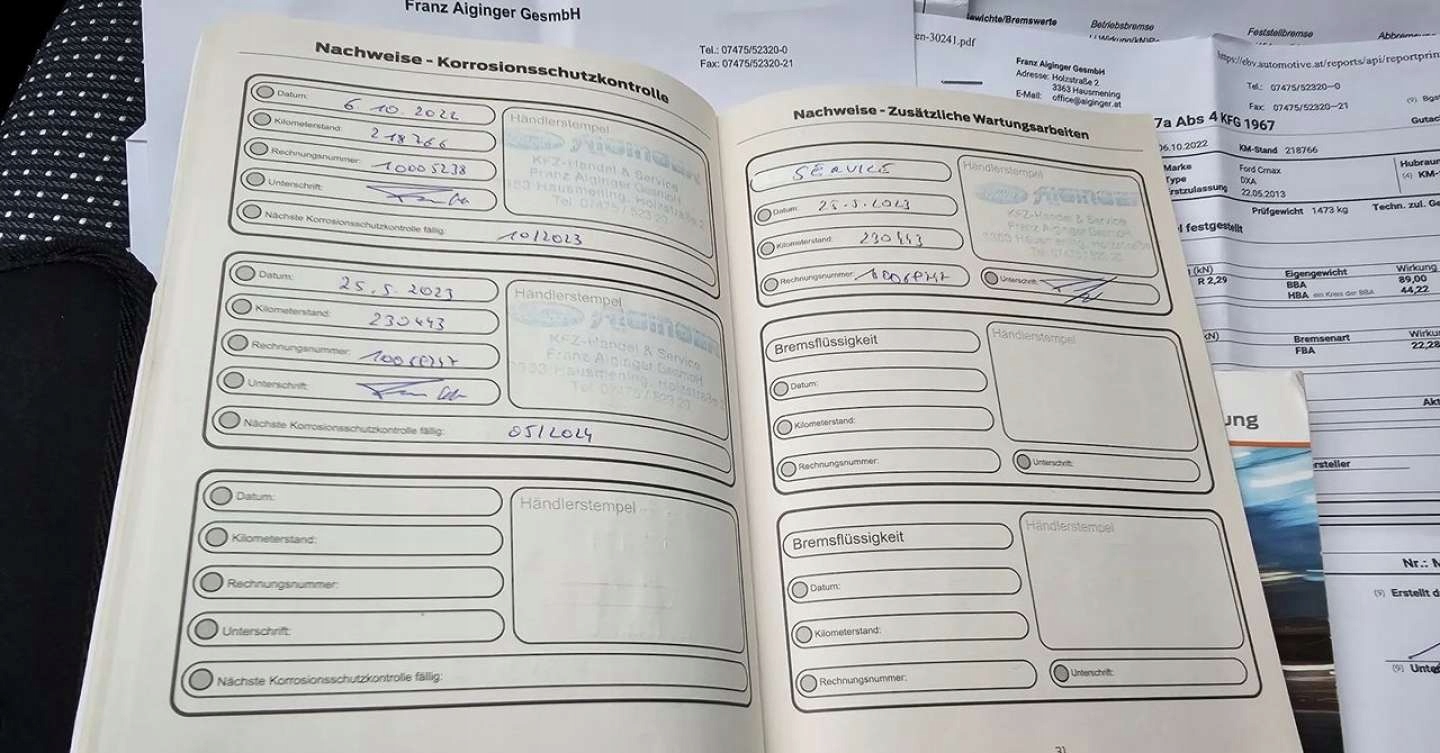 Franz Aiginger GesmbH
Tel.: 07475/52320-0
Fax: 07475/52320-21
Nachweise - Korrosionsschutzkontrolle
Datum: 6.10.2022
Kilometerstand: 218766
Rechnungsnummer: 10005238
Unterschrift:
Nächste Korrosionsschutzkontrolle fällig: 10/2023
Händlerstempel
Aiginger
KFZ-Handel & Service
Franz Aiginger GesmbH
3363 Hausmening, Holzstraße 2
Tel. 07475 / 523 20
Datum: 25.5.2023
Kilometerstand: 230443
Rechnungsnummer:
Unterschrift:
Nächste Korrosionsschutzkontrolle fällig: 05/2024
Händlerstempel
Aiginger
KFZ-Handel & Service
Franz Aiginger GesmbH
3363 Hausmening, Holzstraße 2
Tel. 07475 / 523 20
Datum:
Kilometerstand:
Rechnungsnummer:
Unterschrift:
Nächste Korrosionsschutzkontrolle fällig:
Händlerstempel
Nachweise - Zusätzliche Wartungsarbeiten
SERVICE
Datum: 25.5.2023
Kilometerstand: 230443
Rechnungsnummer:
Unterschrift:
Händlerstempel
Aiginger
KFZ-Handel & Service
Franz Aiginger GesmbH
3363 Hausmening, Holzstraße
Tel. 07475 / 523 20
Bremsflüssigkeit
Datum:
Kilometerstand:
Rechnungsnummer:
Unterschrift:
Händlerstempel
Bremsflüssigkeit
Datum:
Kilometerstand:
Rechnungsnummer:
Unterschrift:
Händlerstempel
31
ewichte/Bremswerte
Betriebsbremse
Feststellbremse
en-30241.pdf
Franz Aiginger GesmbH
Adresse: Holzstraße 2
3363 Hausmening
E-Mail: office@aiginger.at
https://ebv.automotive.at/reports/api/reportprin
Tel.: 07475/52320--0
Fax: 07475/52320--21
7a Abs 4 KFG 1967
06.10.2022
KM-Stand 218766
Marke Ford Cmax
Type DXA
Erstzulassung 22.05.2013
Hubraun
Prüfgewicht 1473 kg
Techn. zul. Ge
l festgestellt
(kN)
R 2,29
Eigengewicht Wirkung
BBA 89,00
HBA ein Kreis der BBA 44,22
kN)
Bremsenart
FBA 22,28
Akt
ung
ersteller
Nr.: M
(9) Erstellt d
(9)